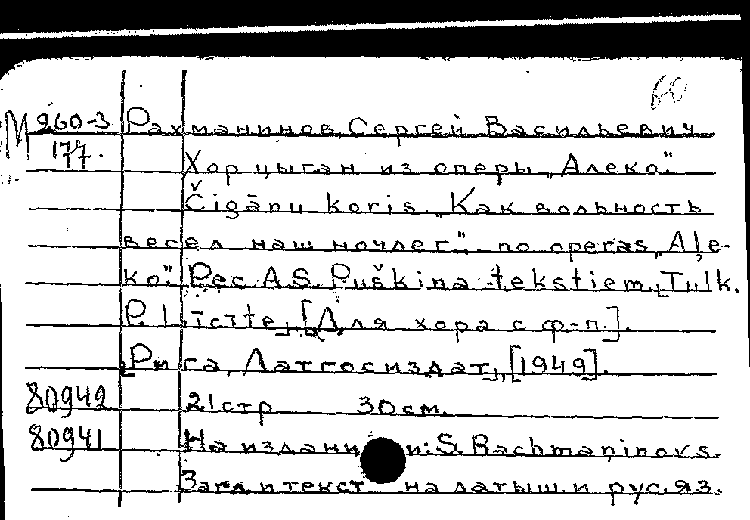 60
М 960-3 Рахманинов, Сергей Васильевич
177. Хор цыган из оперы „Алеко".
Čigānu koris „Как вольность
весел наш ночлег" no operas „Aļe-
ko". Pēc A.S. Puškina tekstiem. Tulk.
[Для хора с ф-п.].
Рига, Латгосиздат, [1949].
80942 21 стр 30 см.
80941 На издании: S. Rachmaņinovs.
Загл и текст на латыш. и рус. яз.